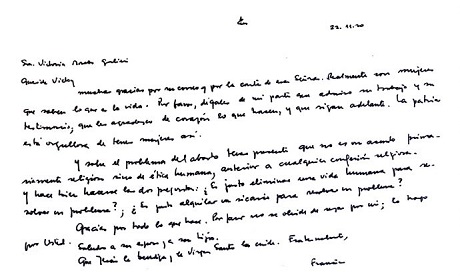 22.11.20
Sra. Victoria Morales Gorleri
Querida Vicky
muchas gracias por su correo y por la carta de esas Sras. Realmente son mujeres
que saben lo que es la vida. Por favor, dígales de mi parte que admiro su trabajo y su
testimonio; que les agradezco de corazón lo que hacen, y que sigan adelante. La patria
está orgullosa de tener mujeres así.
Y sobre el problema del aborto tener presente que no es un asunto prima-
riamente religioso sino de ética humana, anterior a cualquier confesión religiosa.
Y hace bien hacerse las dos preguntas: ¿Es justo eliminar una vida humana para re-
solver un problema?, ¿Es justo alquilar un sicario para resolver un problema?
Gracias por todo lo que hace. Por favor no se olvide de rezar por mí; lo hago
por Usted. Saludos a su esposo y a sus hijos.
Que Jesús la bendiga y la Virgen Santa la cuide. Fraternalmente,
Francisco